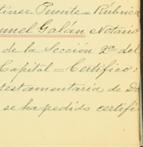 tínez Puente = Rúbrica
nuel Galán, Notario
de la Sección 2ª del
Capital = Certifico:
testamentaría de D
se ha pedido certifi